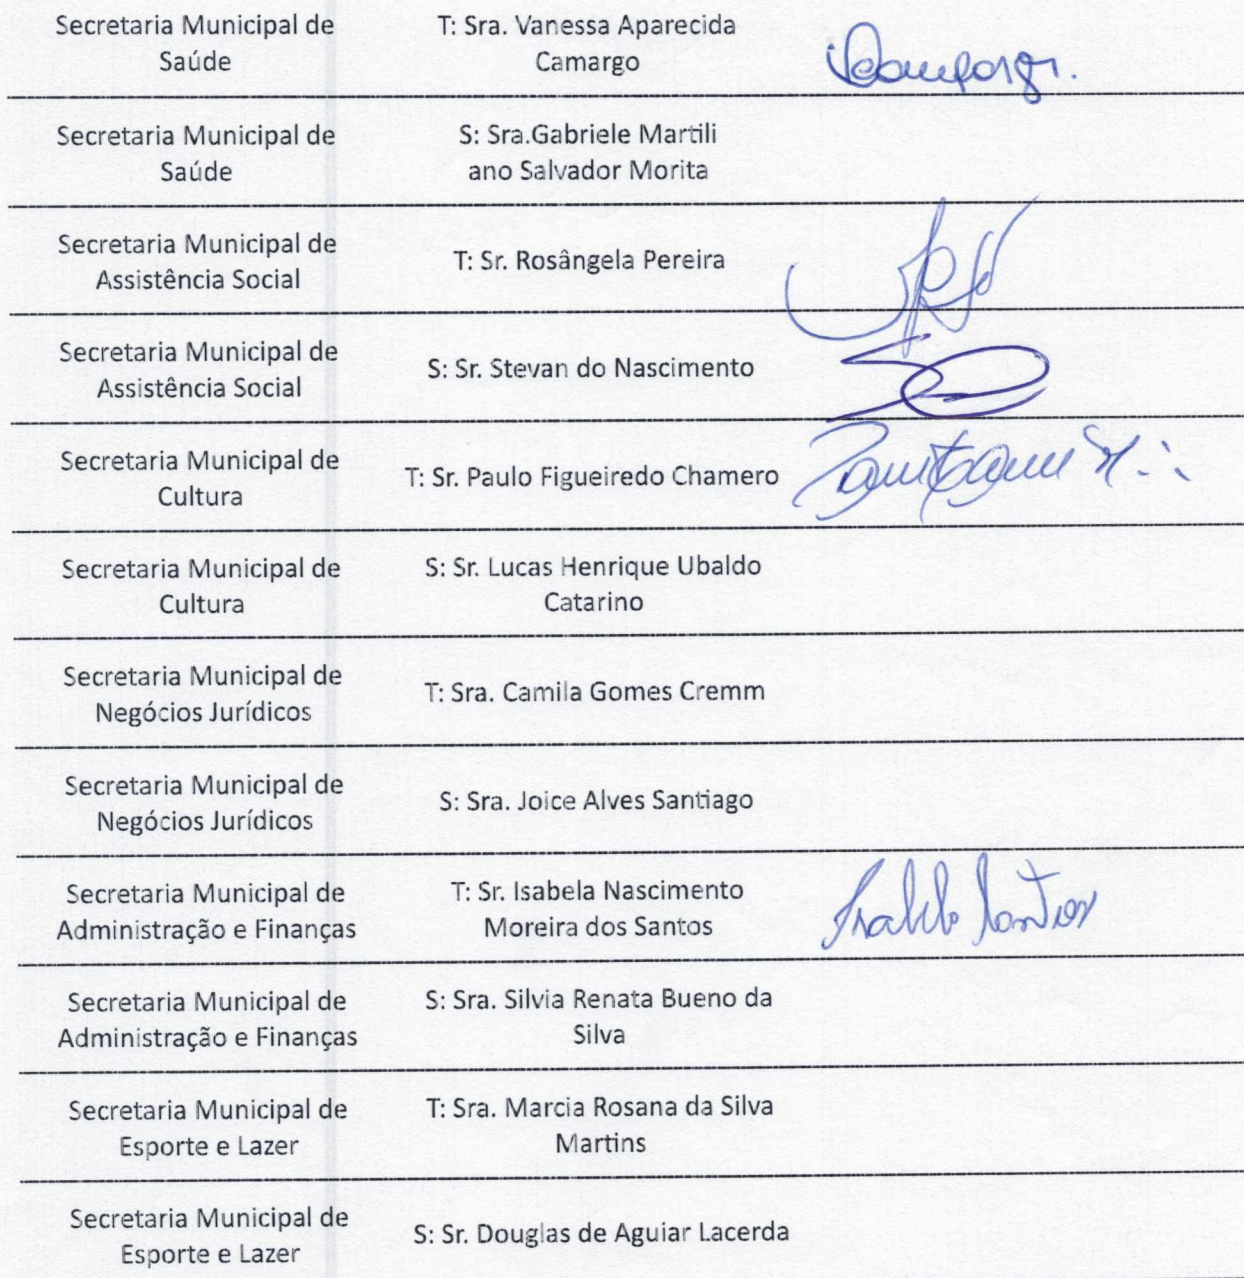 Secretaria Municipal de
Saúde
T: Sra. Vanessa Aparecida
Camargo
Secretaria Municipal de
Saúde
S: Sra.Gabriele Martili
ano Salvador Morita
Secretaria Municipal de
Assistência Social
T: Sr. Rosângela Pereira
Secretaria Municipal de
Assistência Social
S: Sr. Stevan do Nascimento
Secretaria Municipal de
Cultura
T: Sr. Paulo Figueiredo Chamero
Secretaria Municipal de
Cultura
S: Sr. Lucas Henrique Ubaldo
Catarino
Secretaria Municipal de
Negócios Jurídicos
T: Sra. Camila Gomes Cremm
Secretaria Municipal de
Negócios Jurídicos
S: Sra. Joice Alves Santiago
Secretaria Municipal de
Administração e Finanças
T: Sr. Isabela Nascimento
Moreira dos Santos
Secretaria Municipal de
Administração e Finanças
S: Sra. Silvia Renata Bueno da
Silva
Secretaria Municipal de
Esporte e Lazer
T: Sra. Marcia Rosana da Silva
Martins
Secretaria Municipal de
Esporte e Lazer
S: Sr. Douglas de Aguiar Lacerda